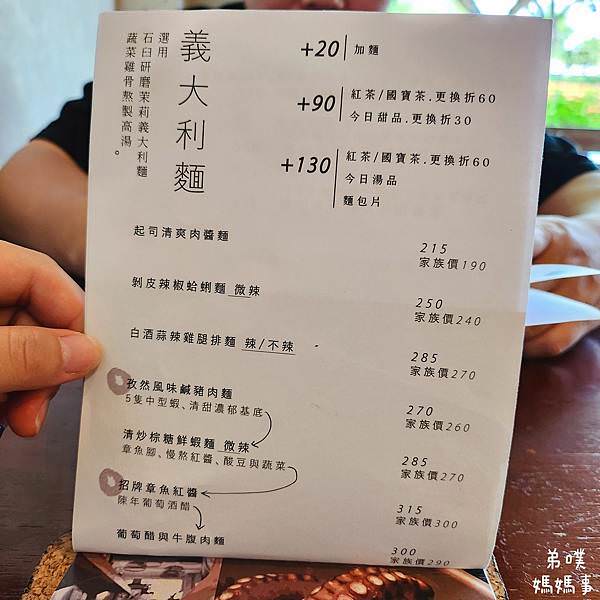 義大利麵
選用
石臼研磨茉莉義大利麵
蔬菜雞骨熬製高湯。
+20 加麵
+90 紅茶/國寶茶.更換折60
今日甜品.更換折30
+130 紅茶/國寶茶.更換折60
今日湯品
麵包片
起司清爽肉醬麵 215
家族價190
剝皮辣椒蛤蜊麵 微辣 250
家族價240
白酒蒜辣雞腿排麵 辣/不辣 285
家族價270
孜然風味鹹豬肉麵 270
5隻中型蝦、清甜濃郁基底 家族價260
清炒棕糖鮮蝦麵 微辣 285
章魚腳、慢熬紅醬、酸豆與蔬菜 家族價270
招牌章魚紅醬 315
陳年葡萄酒醋 家族價300
葡萄醋與牛腹肉麵 300
家族價290
弟噗
媽媽事